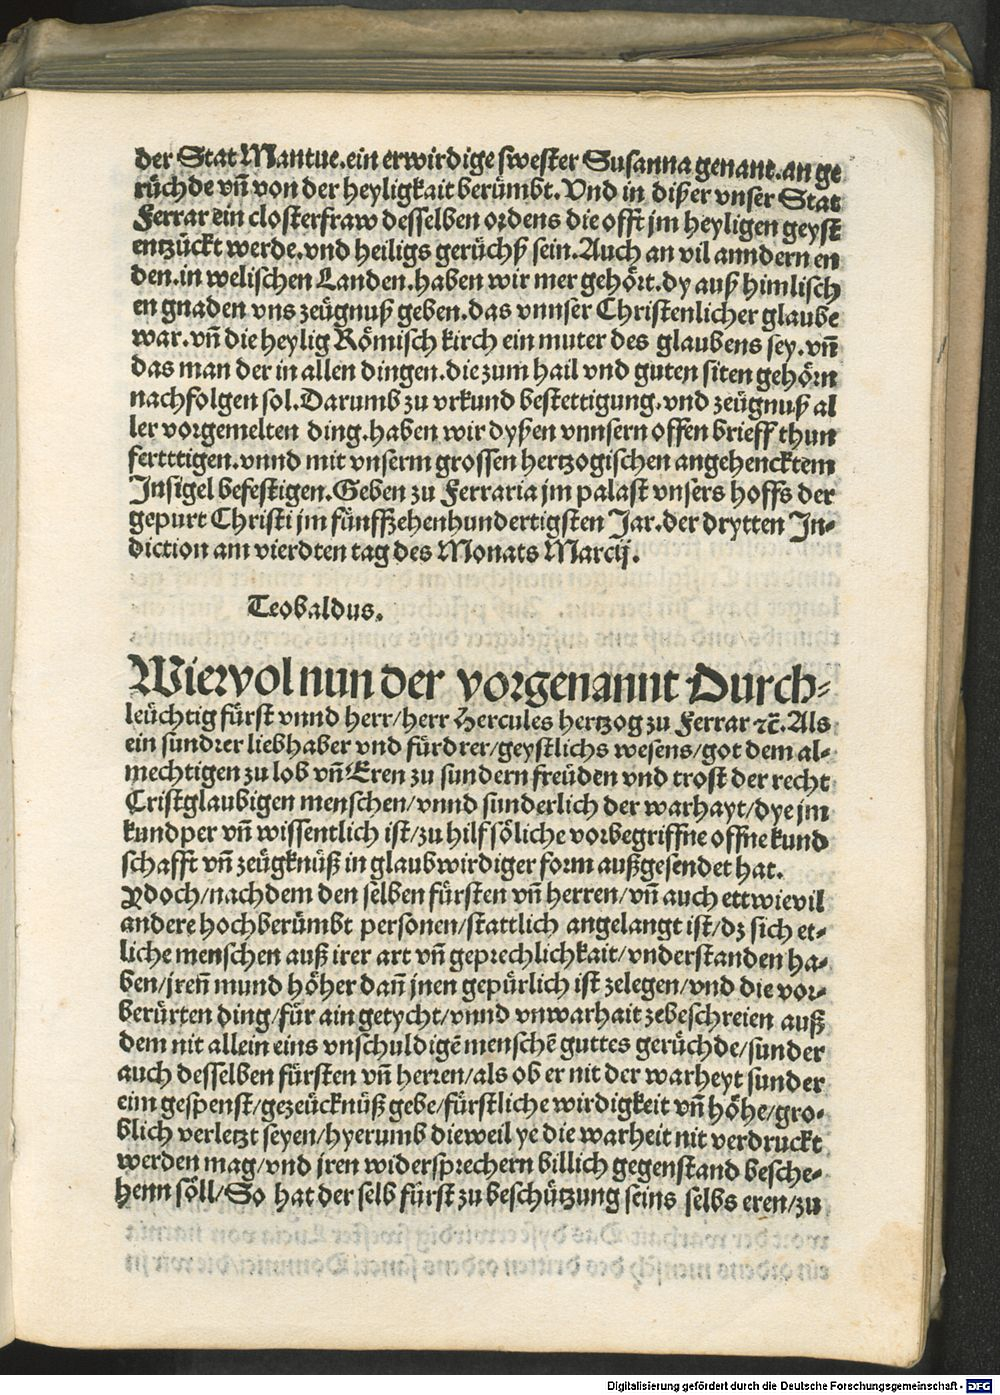 der Stat Mantue.ein erwirdige swester Susanna genant.an ge
rüchde vn̄ von der heyligkait berümbt.Vnd in diser vnser Stat
Ferrar ein closterfraw desselben ordens die offt jm heyligen geyst
entzückt werde.vnd heiligs gerüchß sein.Auch an vil anndern en
den.in welischen Landen.haben wir mer gehört.dy auß himlisch
en gnaden vns zeügnuß geben.das vnnser Christenlicher glaube
war.vn̄ die heylig Römisch kirch ein muter des glaubens sey.vn̄
das man der in allen dingen.die zum hail vnd guten siten gehörn
nachfolgen sol.Darumb zu vrkund bestettigung.vnd zeügnuß al
ler vorgemelten ding.haben wir dyßen vnnsern offen brieff thun
ferttigen.vnnd mit vnserm grossen hertzogischen angehencktem
Jnsigel befestigen.Geben zu Ferraria jm palast vnsers hoffs der
gepurt Christi jm fünffzehenhundertigsten Jar.der drytten Jn-
diction am vierdten tag des Monats Marcij.
Teobaldus.
Wiewol nun der vorgenannt Durch-
leüchtig fürst vnnd herr/herr Hercules hertzog zu Ferrar ⁊c̄.Als
ein sundrer liebhaber vnd fürdrer/geystlichs wesens/got dem al-
mechtigen zu lob vn̄ Eren zu sundern freüden vnd trost der recht
Cristglaubigen menschen/vnnd sunderlich der warhayt/dye jm
kundper vn̄ wissentlich ist/zu hilf söliche vorbegriffne offne kund
schafft vn̄ zeügknüß in glaubwirdiger form außgesendet hat.
Ydoch/nachdem den selben fürsten vn̄ herren/vn̄ auch ettwievil
andere hochberümbt personen/stattlich angelangt ist/dz sich et-
liche menschen auß irer art vn̄ geprechlichkait/vnderstanden ha-
ben/jren̄ mund höher dan̄ jnen gepürlich ist zelegen/vnd die vor-
berürten ding/für ain getycht/vnnd vnwarhait zebeschreien auß
dem nit allein eins vnschuldigē menschē guttes gerüchde/sunder
auch desselben fürsten vn̄ herren/als ob er nit der warheyt sunder
eim gespenst/gezeücknüß gebe/fürstliche wirdigkeit vn̄ höhe/gro-
blich verletzt seyen/hyerumb dieweil ye die warheit nit verdruckt
werden mag/vnd jren widersprechern billich gegenstand besche-
henn söll/So hat der selb fürst zu beschützung seins selbs eren/zu
Digitalisierung gefördert durch die Deutsche Forschungsgemeinschaft - DFG